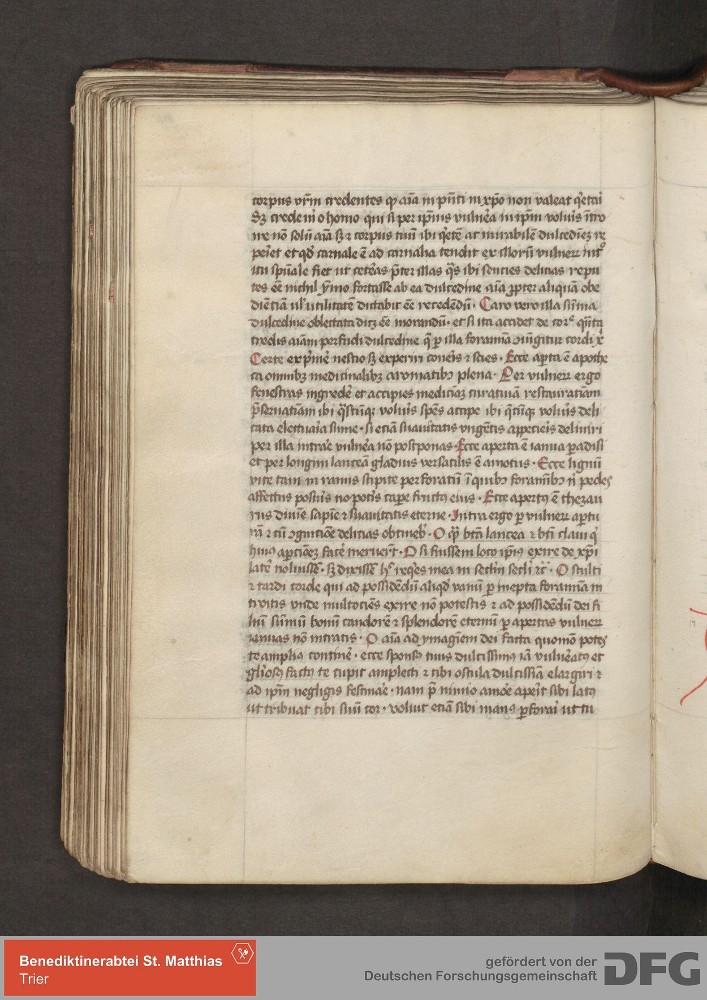 corpus vr̄m credentes ꝙ aīa in pn̄ti in xp̄o non valeat
Sꝫ crede m̄ o homo qui si per ip̄ius vulnēa in ip̄m volūis ītro
ire nō solū aīa sꝫ ⁊ corpus tuū ibi q̄etē at mirabilē dulcedīeꝫ re
periet et qd̓ carnale ē ad carnalia tendit ex illorū vulnerꝝ
itu sp̄uale fiet ut cetēas p̄ter illas q̄s ibi senties delicias repu
tes eē nichil ymo fortasse ab ea dulcedine aīa ꝓpter aliquā obe
diētiā ul̓ utilitatē dictabit eē recedēdū · Caro vero illa sūma
dulcedine oblectata dicꝫ eē morandū · et si ita accidet de cor̓
credis aīam perfrui dulcedine q̄ ꝑ illa foramīa ꝯiūgitur cordi x̄
Certe exp̄mē nescio sꝫ experiri · Ecce aperta ē apothe
ca omnibꝫ medicinalibꝫ aromatibꝫ plena · Per vulnerꝝ ergo
fenestras ingredē et accipies medicīaꝫ curatiuā restauratiuā
p̄seruatiuā ibi q̄scūqꝫ volūis sp̄es accipe ibi q̄cūqꝫ volūis deli
cata electuaīa sume · si etiā suauitatis vngentis appetieis deliniri
per illa intrāe vulnēa nō postponas · Ecce aperta ē ianua ꝑadisi
et per longini lanceā gladius versatilis ē amotus · Ecce lignū
vite tam in ramis stipite perforatū ī quibꝫ foraminibꝫ ni pedes
affectus posūis nō potis capē fructꝫ eius · Ecce apertꝫ ē thezau
rus diuīe sapīe ⁊ suauitatis eterne · Intra ergo ꝑ vulnerꝝ aꝑtu
rā ⁊ cū ꝯgnitiōe delicias obtinebꝫ · O q̄ꝫ btā lancea ⁊ btī claui q̓
huiꝰ aꝑcioneꝫ facē meruert̄ · O si fuissem loco ip̄iꝰ exire de xp̄i
latē noluissē · Sꝫ dixissē hͦ req̄es mea in sc̄lm sc̄li ⁊c̄ · O stulti
⁊ tardi corde qui ad possidēdū aliqd̓ vanū ꝑ inepta foramīa in
troitis vnde multociēs exire nō potestis ⁊ ad possidēdū dei fi
liū sūmū bonū candorē ⁊ splendorē eternū ꝑ apertas vulnerꝝ
ianuas nō intratis · O aīa ad ymagīem dei facta quomō potes
te amplius continē · ecce sponsꝫ tuus dulcissimꝫ iā vulnēatꝫ et
gl̓iosꝫ factꝫ te cupit amplecti ⁊ tibi oscula dulcissīa elargiri ⁊
ad ip̄m negligis festināe · nam p̄ nimio amōe aperīt sibi latꝫ
ut tribuat tibi suū cor · voluit etiā sibi manꝫ ꝑforari ut cū
Benediktinerabtei St. Matthias
Trier
gefördert von der
Deutschen Forschungsgemeinschaft
DFG